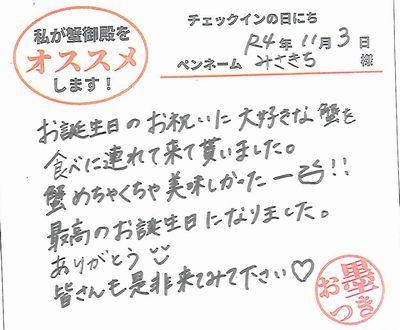 私が蟹御殿を
オススメ
します！
チェックインの日にち
R4年11月3日
ペンネーム みさきち 様
お誕生日のお祝いに大好きな蟹を
食べに連れて来て貰いました。
蟹めちゃくちゃ美味しかったー!!
最高のお誕生日になりました。
ありがとう
皆さんも是非来てみて下さい♡
お墨つき